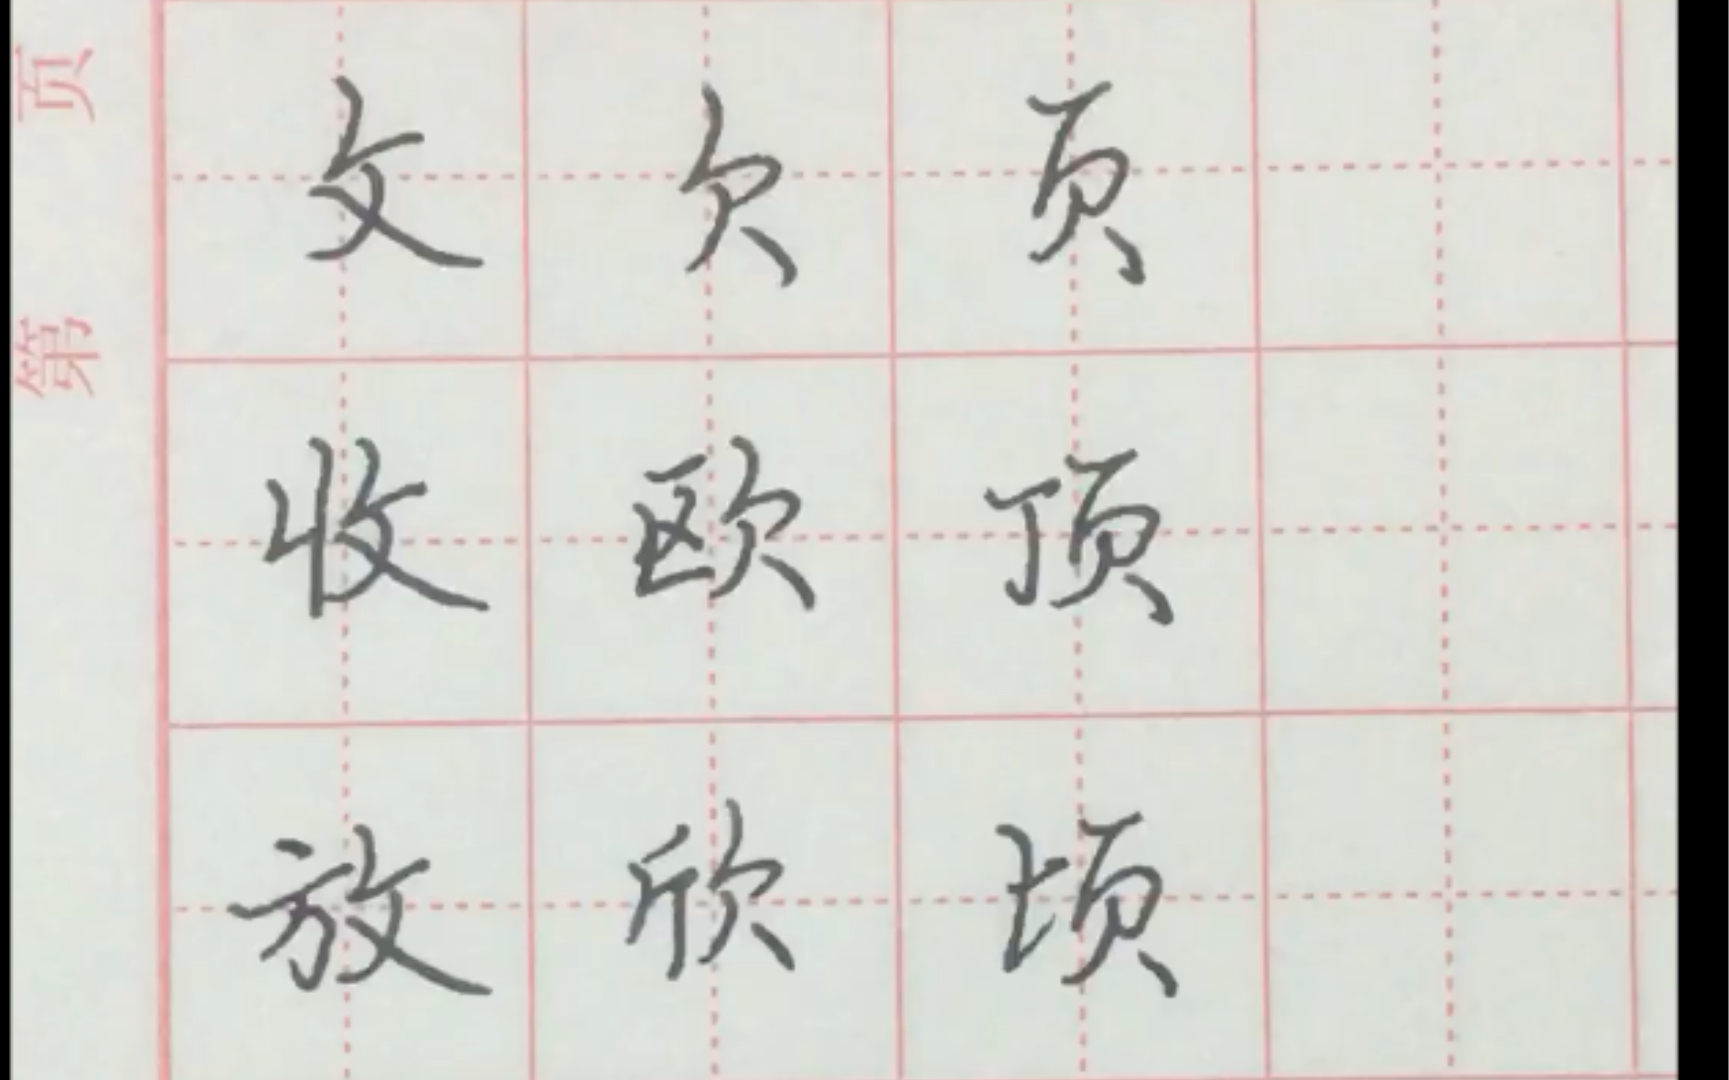 页
第
攵 欠 页
收 欧 顶
放 欣 顷